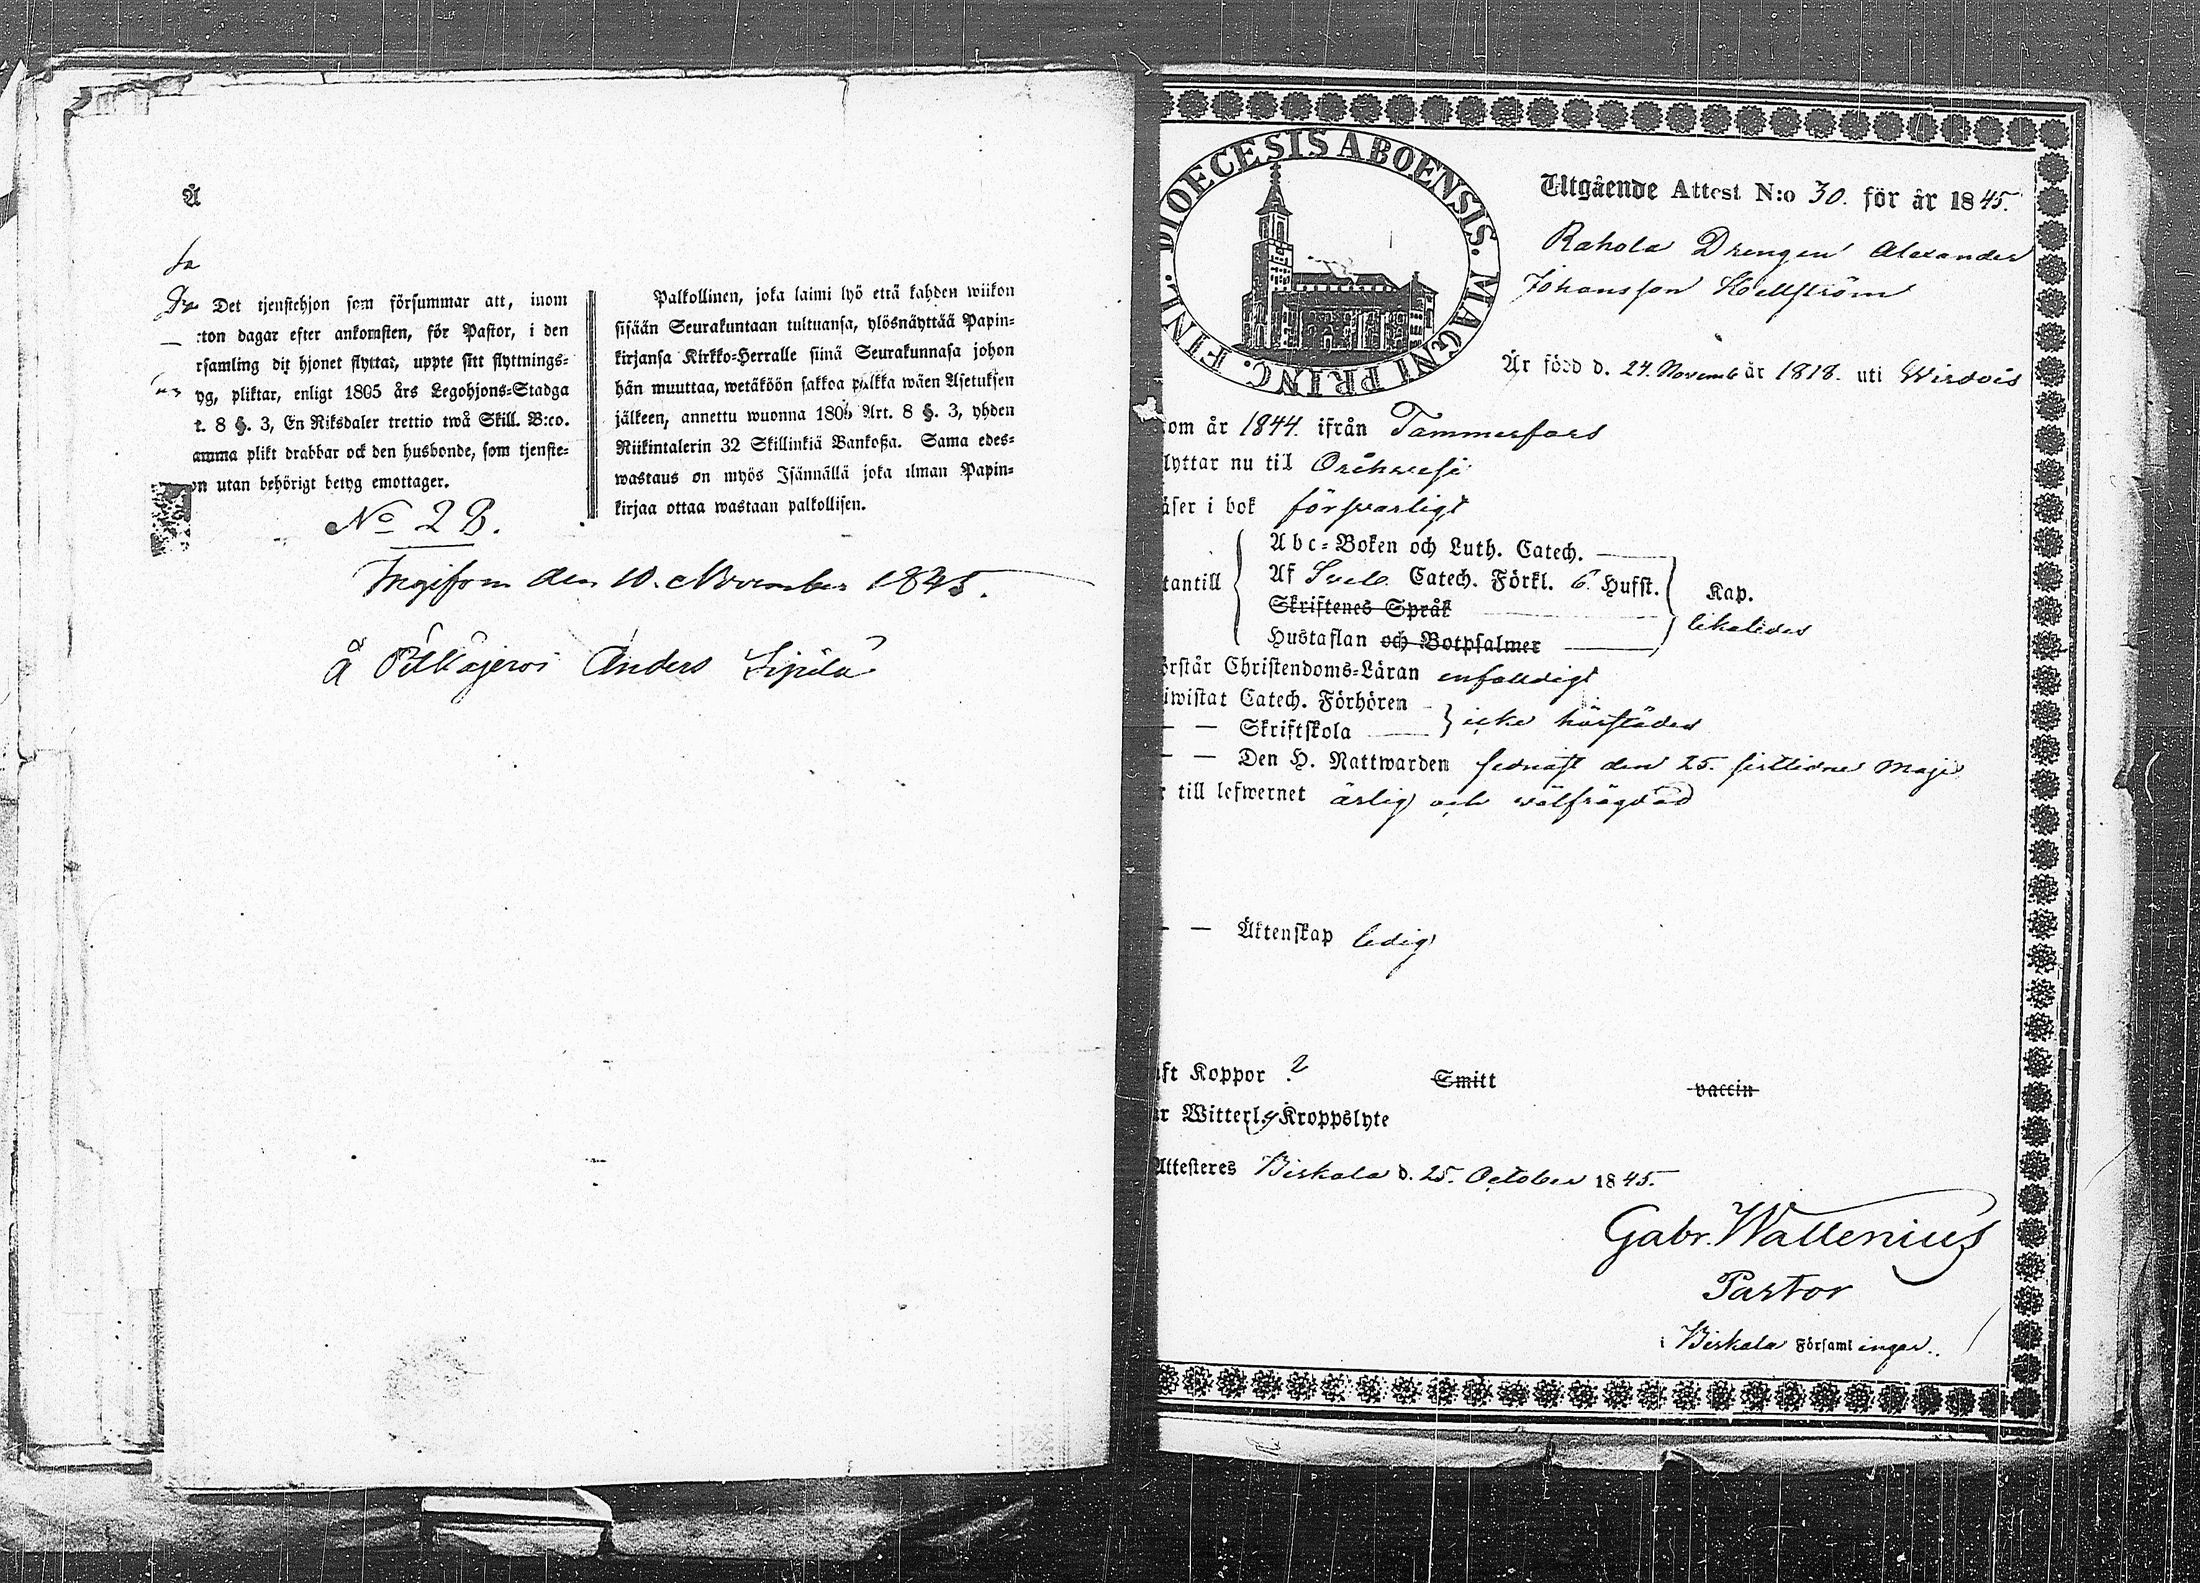 Å
Det tjenstehjon som försummar att, inom
:ton dagar efter ankomsten, för Pastor, i den
rsamling dit hjonet flyttat, uppte sitt flyttnings-
yg, pliktar, enligt 1805 års Legohjons-Stadga
t. 8 §. 3, En Riksdaler trettio twå Skill. B:co.
amma plikt drabbar ock den husbonde, som tjenste-
on utan behörigt betyg emottager.
Palkollinen, joka laimi lyö että kahden wiikon
sisään Seurakuntaan tultuansa, ylösnäyttää Papin-
kirjansa Kirkko-Herralle siinä Seurakunnasa johon
hän muuttaa, wetäköön sakkoa palkka wäen Asetuksen
jälkeen, annettu wuonna 1805 Art. 8 §. 3, yhden
Riikintalerin 32 Skillinkiä Bankoßa. Sama edes-
wastaus on myös Isännällä joka ilman Papin-
kirjaa ottaa wastaan palkollisen.
No 28.
Ingifven den 10. November 1845.
å Pitkäjervi Anders Sipilä
DIOECESIS ABOENSIS. MAGNI PRINC. FINL.
Utgående Attest N:o 30. för år 1845.
Rahola Drengen Alexander
Johansson Hellström
Är född d. 24. Novemb år 1818. uti Wirdois
om år 1844. ifrån Tammerfors
lyttar nu til Orihvesi
äser i bok försvarligt
tantill
Abc-Boken och Luth. Catech.
Af Sveb. Catech. Förkl. 6. Hufst.
Skriftenes Språk
Hustaflan och Botpsalmer
Kap.
likaledes
örstår Christendoms-Läran enfaldigt
iwistat Catech. Förhören
— — Skriftskola
icke härstädes
— — Den H. Nattwarden sednast den 25. sistlidne Maji
r till lefwernet ärlig och välfrägdad
— — Äktenskap ledig
aft Koppor ?
Smitt
vaccin
ar Witterl.g Kroppslyte
Attesteres Birkala d. 25. October 1845.
Gabr. Wallenius
Pastor
i Birkala Församlingar.